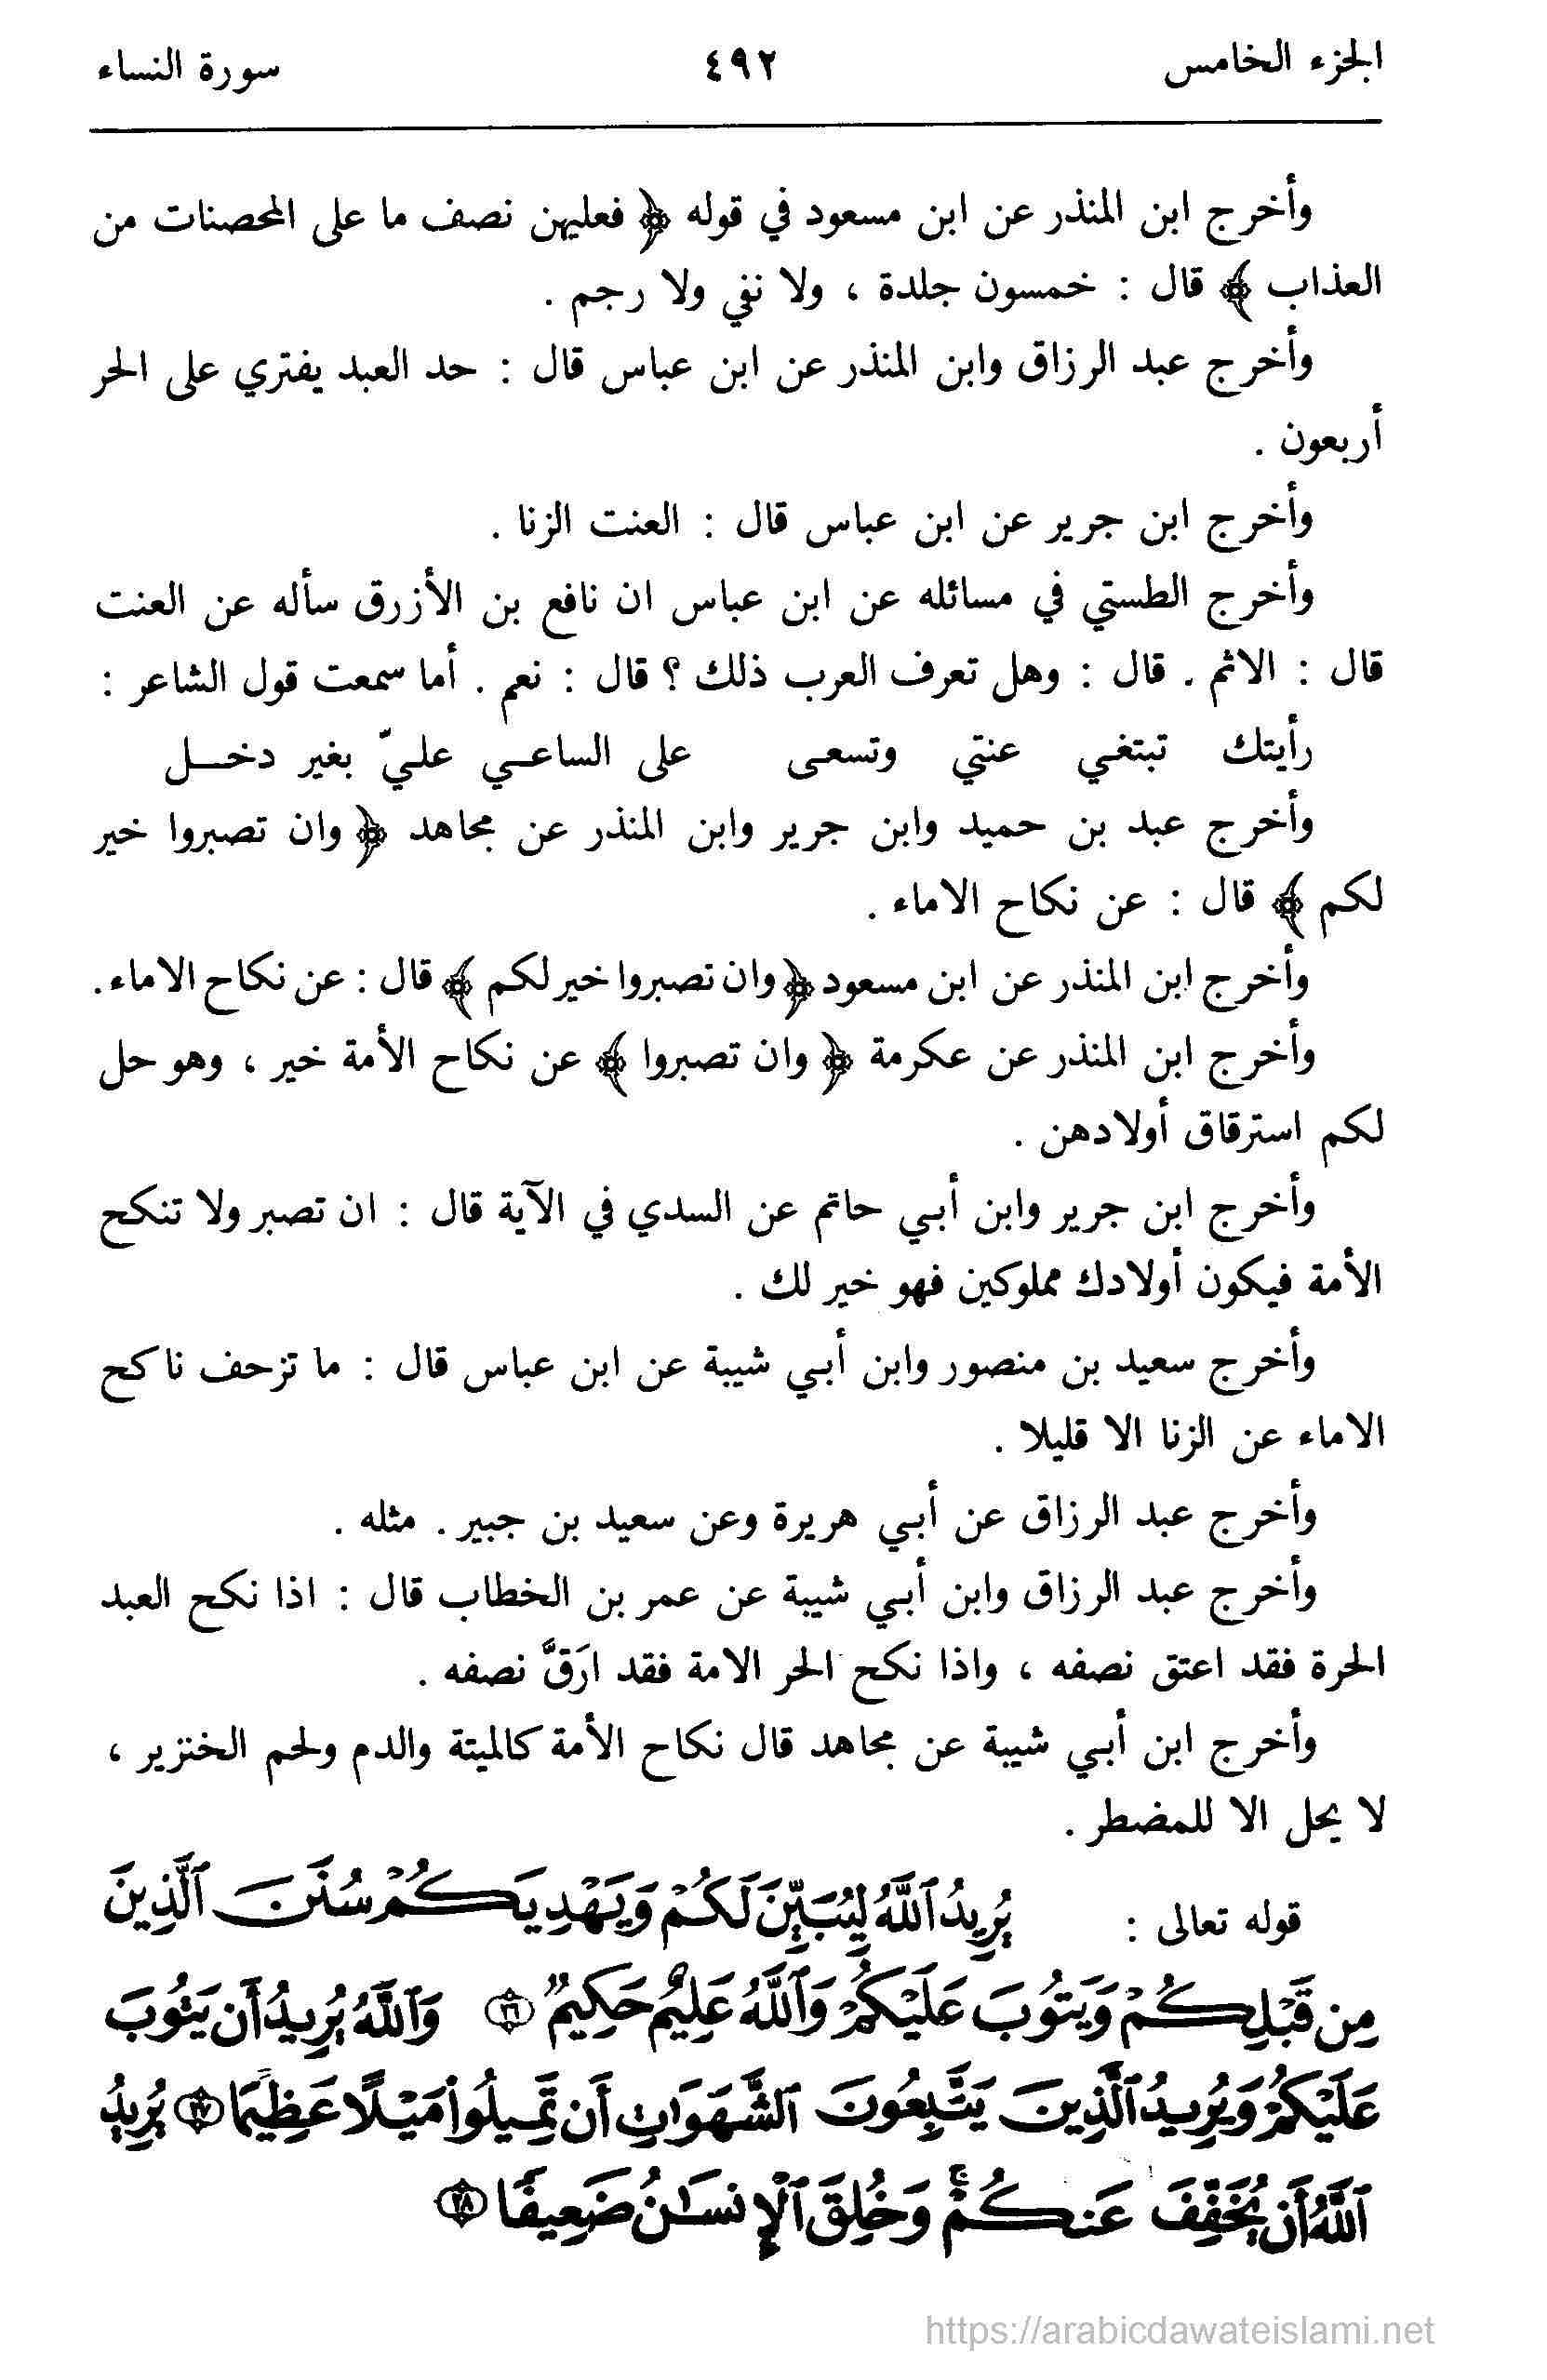 الجزء الخامس ٤٩٢ سورة النساء
وأخرج ابن المنذر عن ابن مسعود في قوله ﴿ فعليهن نصف ما على المحصنات من
العذاب ﴾ قال : خمسون جلدة ، ولا نفي ولا رجم .
وأخرج عبد الرزاق وابن المنذر عن ابن عباس قال : حد العبد يفتري على الحر
أربعون .
وأخرج ابن جرير عن ابن عباس قال : العنت الزنا .
وأخرج الطستي في مسائله عن ابن عباس ان نافع بن الأزرق سأله عن العنت
قال : الاثم . قال : وهل تعرف العرب ذلك ؟ قال : نعم . أما سمعت قول الشاعر :
رأيتك تبتغي عنتي وتسعى على الساعي عليّ بغير دخل
وأخرج عبد بن حميد وابن جرير وابن المنذر عن مجاهد ﴿ وان تصبروا خير
لكم ﴾ قال : عن نكاح الاماء .
وأخرج ابن المنذر عن ابن مسعود ﴿ وان تصبروا خير لكم ﴾ قال : عن نكاح الاماء .
وأخرج ابن المنذر عن عكرمة ﴿ وان تصبروا ﴾ عن نكاح الأمة خير ، وهو حل
لكم استرقاق أولادهن .
وأخرج ابن جرير وابن أبي حاتم عن السدي في الآية قال : ان تصبر ولا تنكح
الأمة فيكون أولادك مملوكين فهو خير لك .
وأخرج سعيد بن منصور وابن أبي شيبة عن ابن عباس قال : ما تزحف ناكح
الاماء عن الزنا الا قليلا .
وأخرج عبد الرزاق عن أبي هريرة وعن سعيد بن جبير . مثله .
وأخرج عبد الرزاق وابن أبي شيبة عن عمر بن الخطاب قال : اذا نكح العبد
الحرة فقد اعتق نصفه ، واذا نكح الحر الامة فقد ارَقَّ نصفه .
وأخرج ابن أبي شيبة عن مجاهد قال نكاح الأمة كالميتة والدم ولحم الخنزير ،
لا يحل الا للمضطر .
قوله تعالى : يُرِيدُ ٱللَّهُ لِيُبَيِّنَ لَكُمْ وَيَهْدِيَكُمْ سُنَنَ ٱلَّذِينَ
مِن قَبْلِكُمْ وَيَتُوبَ عَلَيْكُمْ وَٱللَّهُ عَلِيمٌ حَكِيمٌ ۝٢٦ وَٱللَّهُ يُرِيدُ أَن يَتُوبَ
عَلَيْكُمْ وَيُرِيدُ ٱلَّذِينَ يَتَّبِعُونَ ٱلشَّهَوَٰتِ أَن تَمِيلُوا۟ مَيْلًا عَظِيمًا ۝٢٧ يُرِيدُ
ٱللَّهُ أَن يُخَفِّفَ عَنكُمْ ۚ وَخُلِقَ ٱلْإِنسَـٰنُ ضَعِيفًا ۝٢٨
https://arabicdawateislami.net